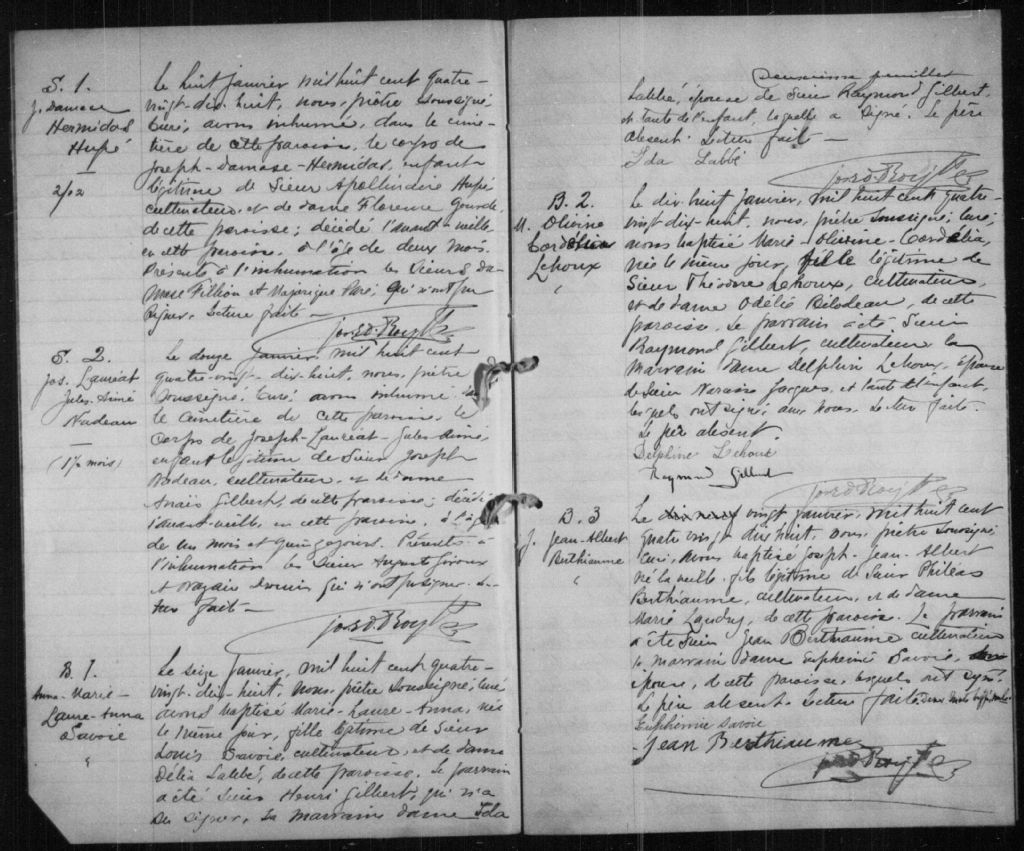 S. 1.
J. Damase
Hermidas
Hupé
2/02
Le huit janvier mil huit cent quatre-
vingt-dix-huit, nous, prêtre soussigné,
curé, avons inhumé, dans le cime-
tière de cette paroisse, le corps de
Joseph-Damase-Hermidas, enfant
légitime de Sieur Apollinaire Hupé
cultivateur, et de dame Florence
de cette paroisse; décédé l'avant-veille
en cette paroisse, à l'âge de deux mois.
Présents à l'inhumation les Sieurs Da-
mase Fillion et Majorique Paré, qui n'ont su
signer. Lecture faite —
Jos. D. Roy Ptre
S. 2.
Jos. Lauréat
Jules-Aimé
Nadeau
(1½ mois)
Le douze janvier mil huit cent
quatre-vingt-dix-huit, nous, prêtre
soussigné, curé avons inhumé
le cimetière de cette paroisse, le
corps de Joseph-Lauréat-Jules Aimé,
enfant légitime de Sieur Joseph
Nadeau, cultivateur, et de dame
Anaïs Gilbert, de cette paroisse; décédé
l'avant-veille, en cette paroisse, à l'âge
de un mois et quinze jours. Présents à
l'inhumation les Sieurs August Giroux
et qui n'ont su signer. Lec-
ture faite —
Jos. D. Roy Ptre
B. 1.
Anna-Marie-
Laure-Anna
Savoie
"
Le seize janvier, mil huit cent quatre-
vingt-dix-huit, nous, prêtre soussigné, curé
avons baptisé Marie-Laure-Anna, née
le même jour, fille légitime de Sieur
Louis Savoie, cultivateur, et de dame
Délia Labbé, de cette paroisse. Le parrain
a été Sieur Henri Gilbert, qui n'a
su signer, la marraine dame Ida
Deuxième feuillet
Labbé, épouse de Sieur Raymond Gilbert,
et tante de l'enfant, laquelle a signé. Le père
absent. Lecture faite —
Ida Labbé
Jos. D. Roy Ptre
B. 2.
M. Olivine
Cordélia
Lehoux
"
Le dix-huit janvier, mil huit cent quatre-
vingt-dix-huit, nous, prêtre soussigné, curé,
avons baptisé Marie-Olivine-Cordélia,
née le même jour, fille légitime de
Sieur Théodore Lehoux, cultivateur,
et de dame Odélie Bilodeau, de cette
paroisse. Le parrain a été Sieur
Raymond Gilbert, cultivateur la
marraine dame Delphine Lehoux, épouse
de Sieur Narcisse Jacques, et tante de l'enfant,
lesquels ont signé avec nous. Lecture faite.
Le père absent.
Delphine Lehoux
Raymond Gilbert
Jos. D. Roy Ptre
B. 3
J. Jean-Albert
Berthiaume
"
Le dix neuf vingt janvier, mil huit cent
quatre vingt dix huit, nous prêtre soussigné,
curé, avons baptisé Joseph-Jean-Albert
né la veille, fils légitime de Sieur Philéas
Berthiaume, cultivateur, et de dame
Marie Landry, de cette paroisse. Le parrain
a été Sieur Jean Berthiaume cultivateur
la marraine dame Euphémie Savoie, son
épouse, de cette paroisse, lesquels ont signé.
Le père absent. Lecture faite. Deux mots biffés nuls.
Euphémie Savoie
Jean Berthiaume
Jos. D. Roy Ptre